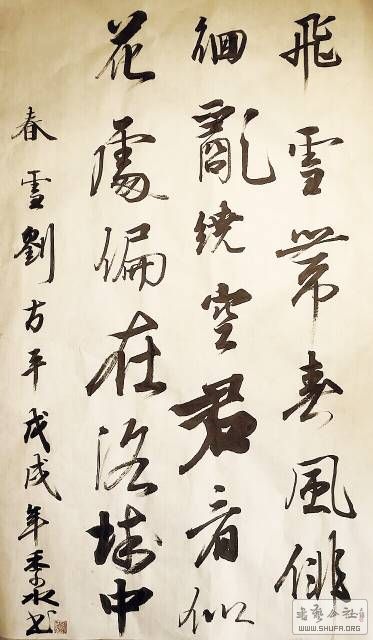 飛雪帶春風俳
徊亂繞空君看似
花處偏在洛城中
春雪劉方平戊戌年水书
书艺公社
WWW.SHUFA.ORG